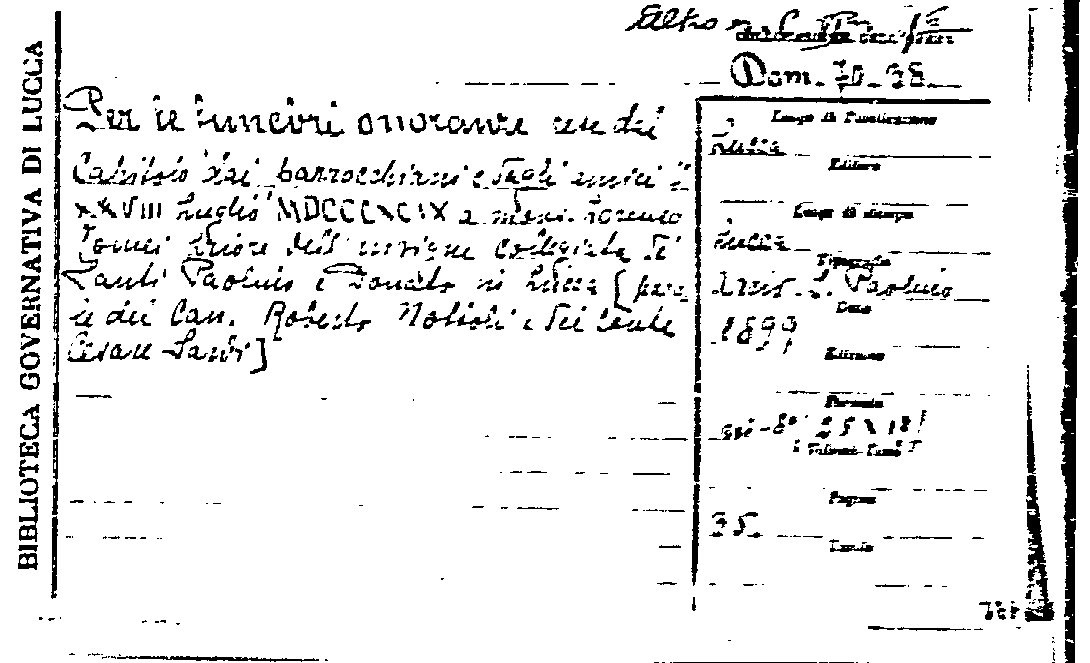 BIBLIOTECA GOVERNATIVA DI LUCCA
Altro
Dom. 70-38.
Per le funebri onoranze rese dal
Capitolo dai parrocchiani e dagli amici il
XXVIII Luglio MDCCCXCIX a mons. Lorenzo
Tomei priore dell'insigne collegiata dei
Santi Paolino e Donato in Lucca [paro
le dei Can. Roberto e del conte
Cesare Sardi]
Luogo di Pubblicazione
Lucca
Editore
Luogo di stampa
Lucca
Tipografia
Arciv. S. Paolino
Data
1899
Edizione
Formato
25 X 18
Pagine
35.
Tavole